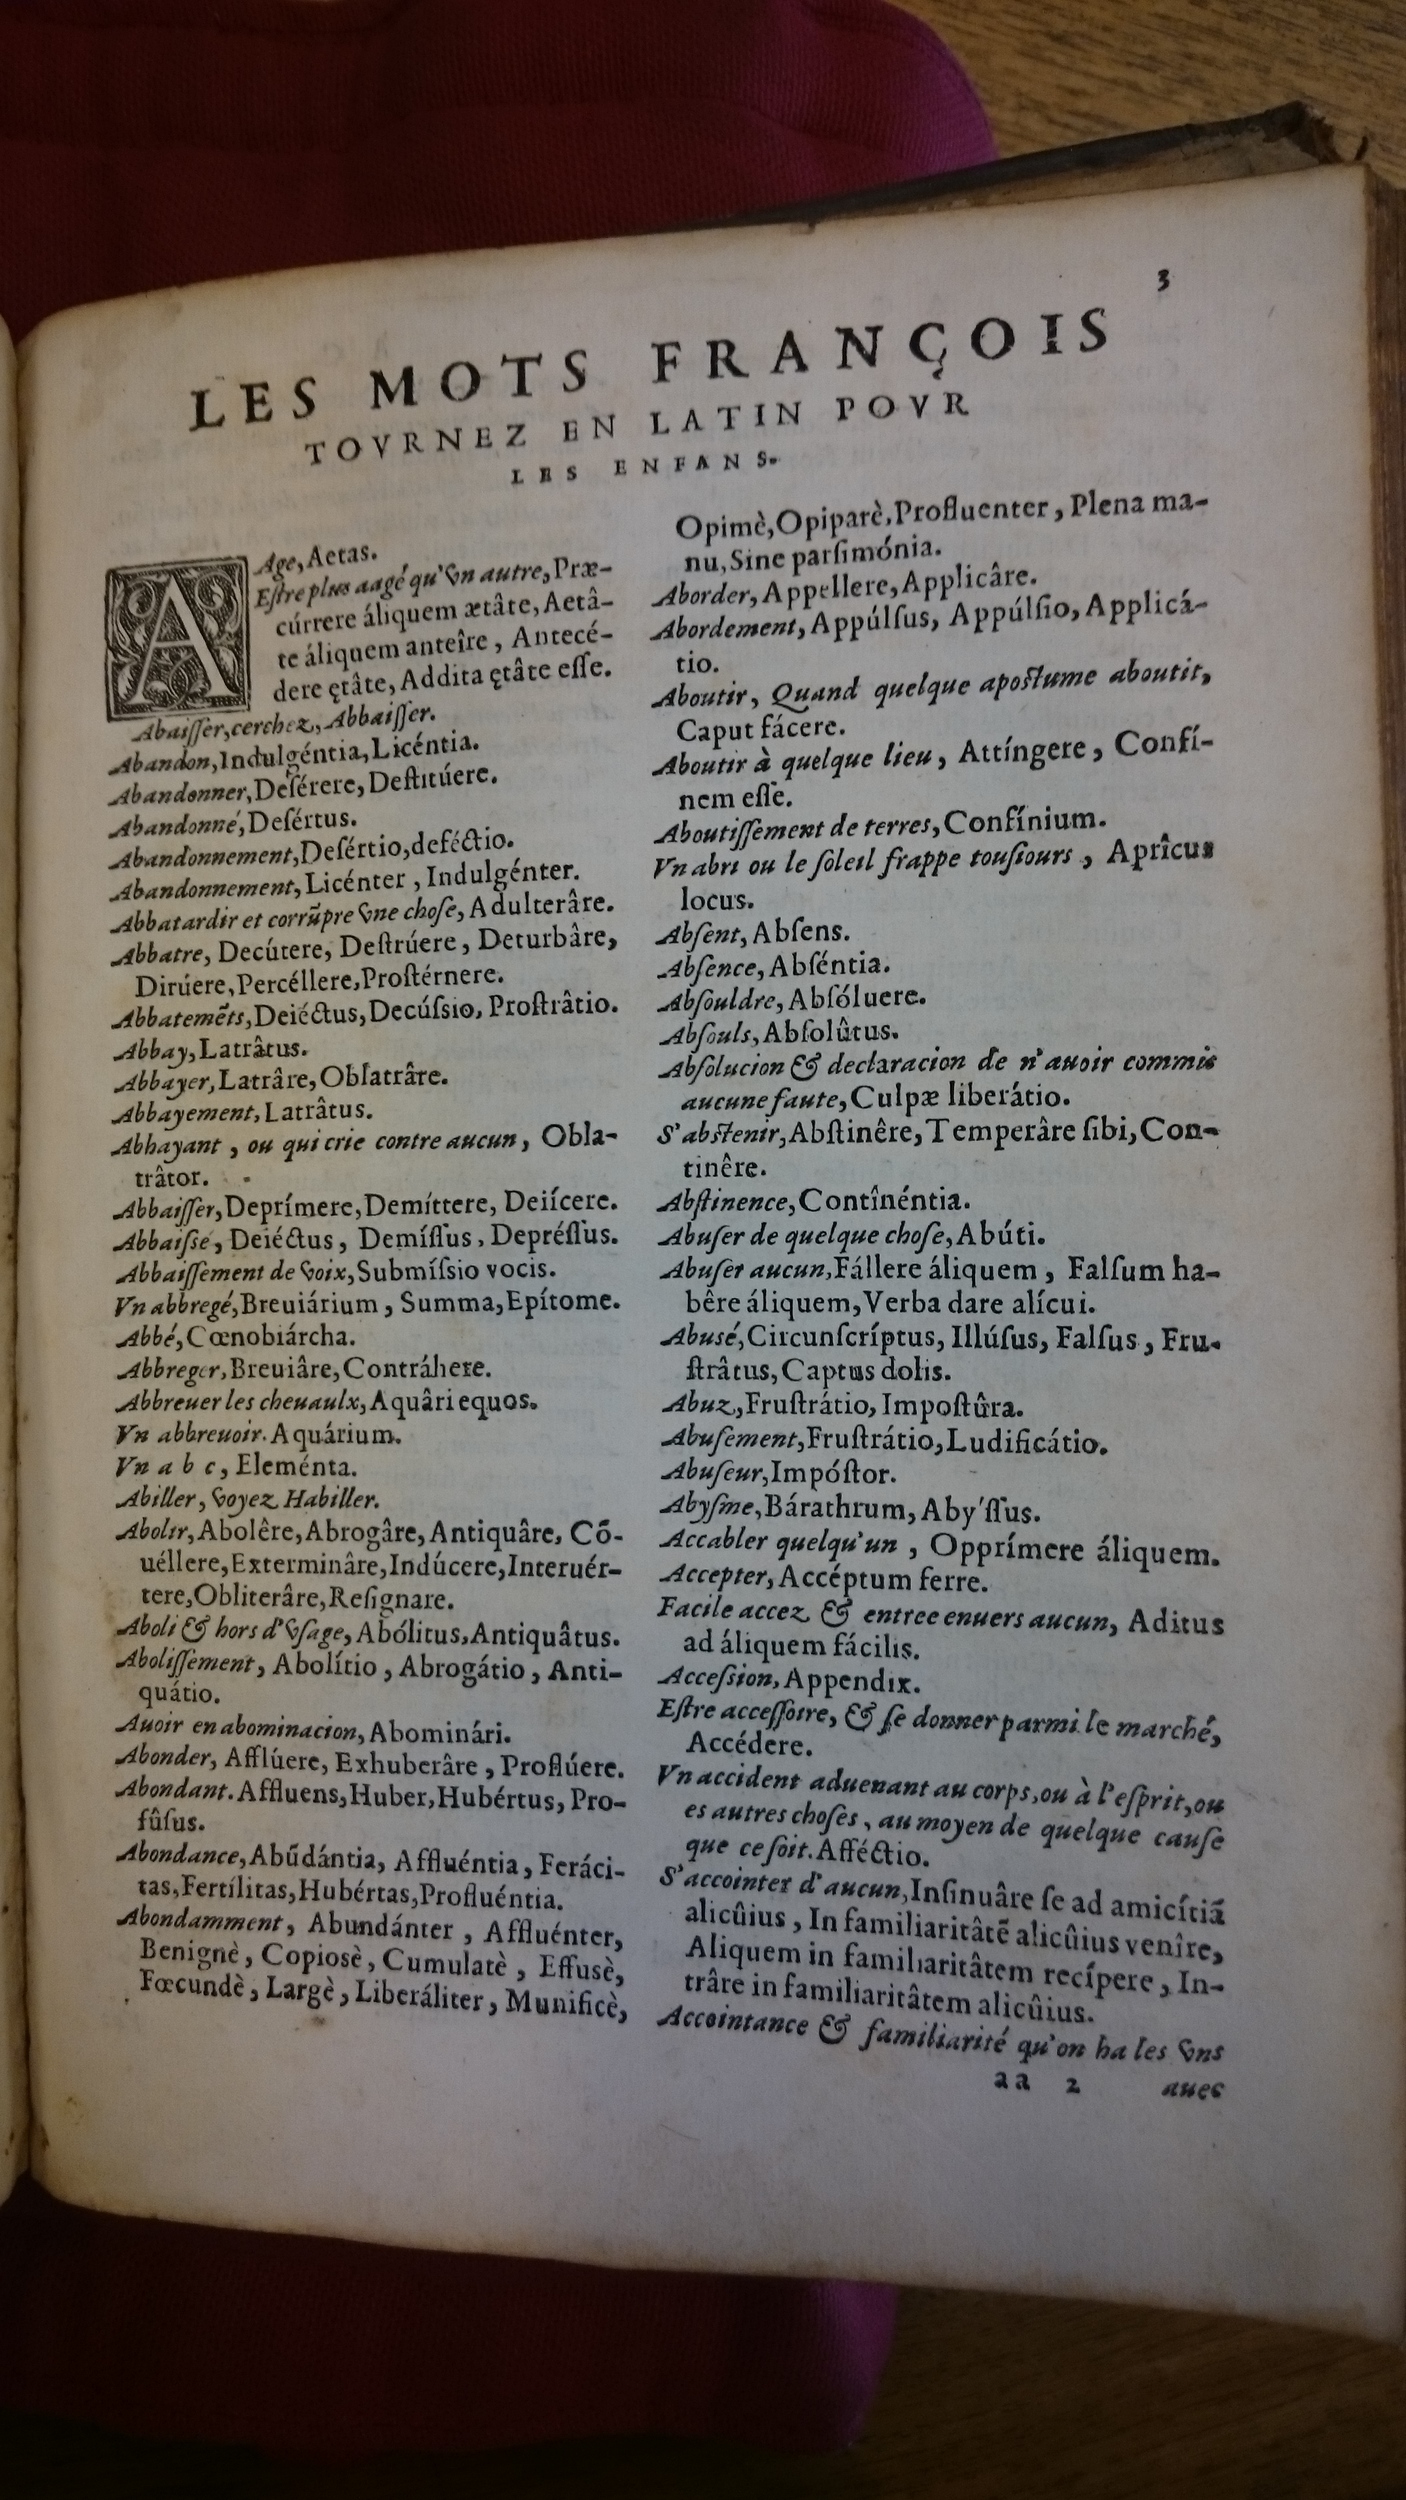 3
LES MOTS FRANÇOIS
TOVRNEZ EN LATIN POVR
LES ENFANS.
AAge, Aetas.
Eſtre plus aagé qu'vn autre, Præ-
cúrrere áliquem ætâte, Aetâ-
te áliquem anteîre, Antecé-
dere ętâte, Addita ętâte eſſe.
Abaiſſer, cerchez, Abbaiſſer.
Abandon, Indulgéntia, Licéntia.
Abandonner, Deſérere, Deſtitúere.
Abandonné, Deſértus.
Abandonnement, Deſértio, deféctio.
Abandonnement, Licénter, Indulgénter.
Abbatardir et corrũpre vne choſe, Adulterâre.
Abbatre, Decútere, Deſtrúere, Deturbâre,
Dirúere, Percéllere, Proſtérnere.
Abbatemẽts, Deiéctus, Decúſsio, Proſtrâtio.
Abbay, Latrâtus.
Abbayer, Latrâre, Oblatrâre.
Abbayement, Latrâtus.
Abbayant, ou qui crie contre aucun, Obla-
trâtor.
Abbaiſſer, Deprímere, Demíttere, Deiícere.
Abbaiſse, Deiéctus, Demíſſus, Depréſſus.
Abbaiſſement de voix, Submíſsio vocis.
Vn abbregé, Breuiárium, Summa, Epítome.
Abbé, Cœnobiárcha.
Abbreger, Breuiâre, Contráhere.
Abbreuer les cheuaulx, Aquâri equos.
Vn abbreuoir. Aquárium.
Vn a b c, Eleménta.
Abiller, voyez Habiller.
Abolir, Abolêre, Abrogâre, Antiquâre, Cõ-
uéllere, Exterminâre, Indúcere, Interuér-
tere, Obliterâre, Reſignare.
Aboli & hors d'vſage, Abólitus, Antiquâtus.
Aboliſſement, Abolítio, Abrogátio, Anti-
quátio.
Auoir en abominacion, Abominári.
Abonder, Afflúere, Exhuberâre, Proflúere.
Abondant. Affluens, Huber, Hubértus, Pro-
fûſus.
Abondance, Abũdántia, Affluéntia, Feráci-
tas, Fertílitas, Hubértas, Profluéntia.
Abondamment, Abundánter, Affluénter,
Benignè, Copiosè, Cumulatè, Effusè,
Fœcundè, Largè, Liberáliter, Munificè,
Opimè, Opiparè, Profluenter, Plena ma-
nu, Sine parſimónia.
Aborder, Appellere, Applicâre.
Abordement, Appúlſus, Appúlſio, Applicá-
tio.
Aboutir, Quand quelque apoſtume aboutit,
Caput fácere.
Aboutir à quelque lieu, Attíngere, Confí-
nem eſſe.
Aboutiſſement de terres, Confínium.
Vn abri ou le ſoleil frappe touſiours, Aprîcus
locus.
Abſent, Abſens.
Abſence, Abſéntia.
Abſouldre, Abſóluere.
Abſouls, Abſolûtus.
Abſolucion & declaracion de n'auoir commis
aucune faute, Culpæ liberátio.
S'abſtenir, Abſtinêre, Temperâre ſibi, Con-
tinêre.
Abſtinence, Contînéntia.
Abuſer de quelque choſe, Abúti.
Abuſer aucun, Fállere áliquem, Falſum ha-
bêre áliquem, Verba dare alícui.
Abusé, Circunſcríptus, Illúſus, Falſus, Fru-
ſtrâtus, Captus dolis.
Abuz, Fruſtrátio, Impoſtûra.
Abuſement, Fruſtrátio, Ludificátio.
Abuſeur, Impóſtor.
Abyſme, Bárathrum, Aby'ſſus.
Accabler quelqu'un, Opprímere áliquem.
Accepter, Accéptum ferre.
Facile accez & entree enuers aucun, Aditus
ad áliquem fácilis.
Acceſsion, Appendix.
Eſtre acceſſoire, & ſe donner parmi le marché,
Accédere.
Vn accident aduenant au corps, ou à l'eſprit, ou
es autres choſes, au moyen de quelque cauſe
que ce ſoit. Afféctio.
S'accointer d'aucun, Inſinuâre ſe ad amicítiã
alicûius, In familiaritâtẽ alicûius venîre,
Aliquem in familiaritâtem recípere, In-
trâre in familiaritâtem alicûius.
Accointance & familiarité qu'on ha les vns
aa 2 auec